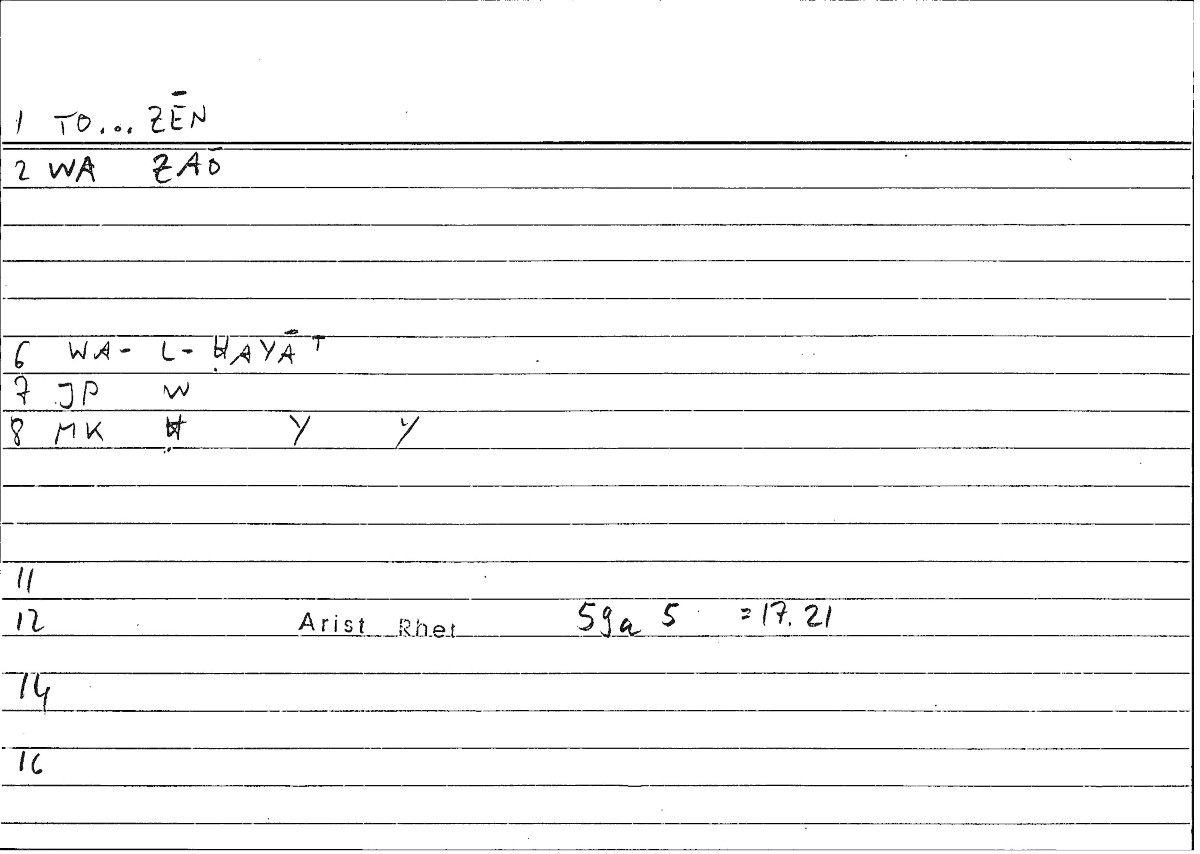 1 TO... ZĒN
2 WA ZAŌ
6 WA- L- ḤAYĀT
7 JP W
8 MK Ḥ Y Y
11
12 Arist Rhet 59a 5 =17.21
14
16